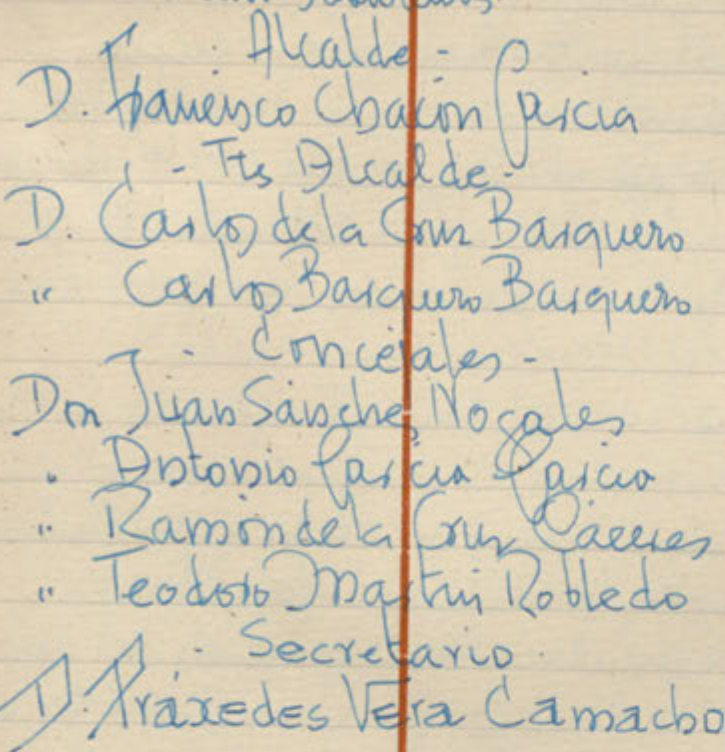 Alcalde -
D. Francisco Chacón García
- Tts Alcalde -
D. Carlos de la Cruz Barquero
" Carlos Barquero Barquero
- Concejales -
Don Juan Sánchez Nogales
" Antonio García García
" Ramón de la Cruz Cáceres
" Teodoro Martín Robledo
- Secretario -
D. Práxedes Vera Camacho